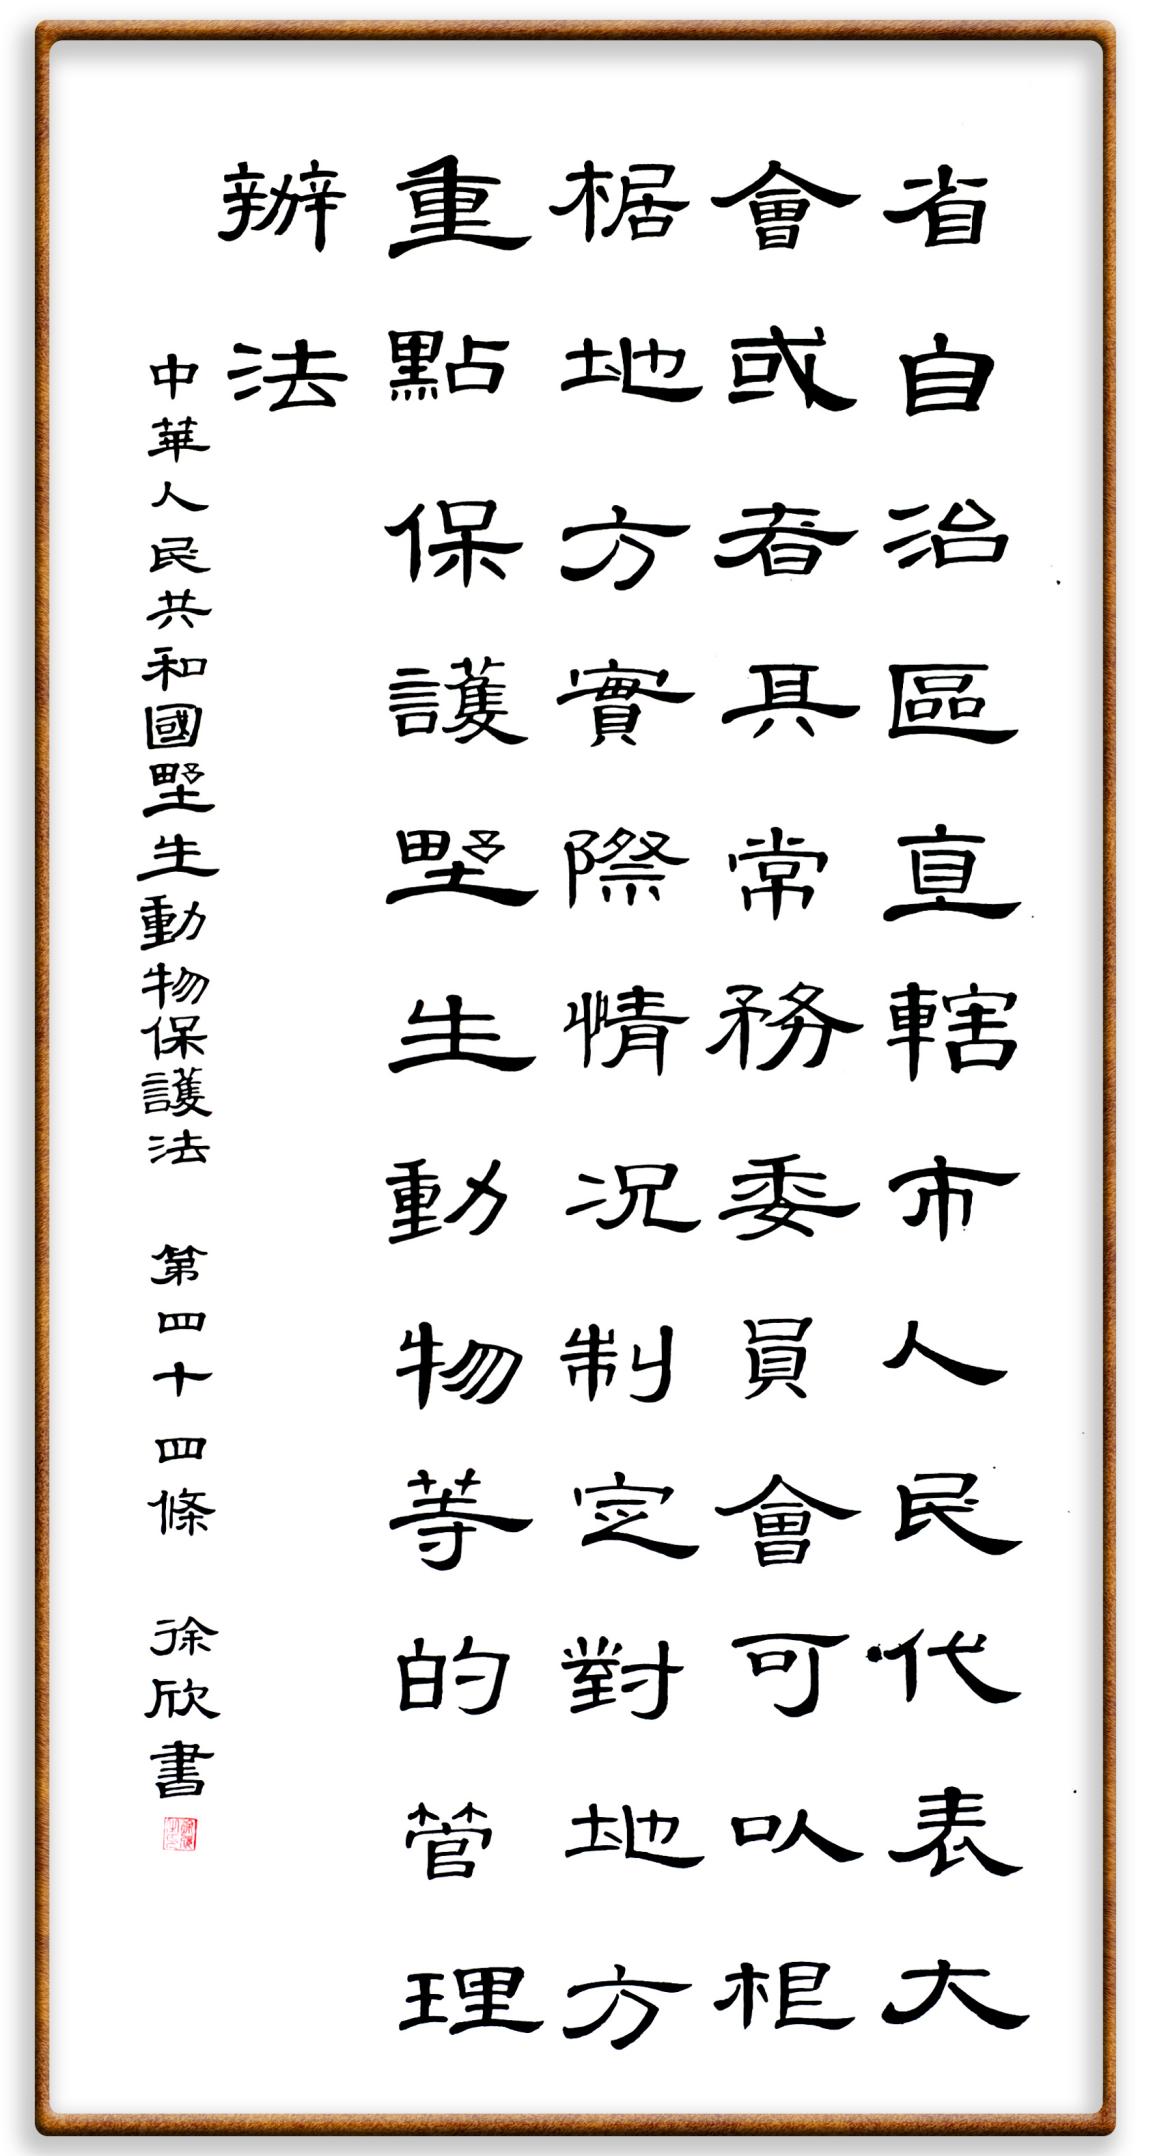 省自治區直轄市人民代表大
會或者具常務委員會可以根
椐地方實際情况制定對地方
重點保護野生動物等的管理
辦法
中華人民共和國野生動物保護法 第四十四條 徐欣書